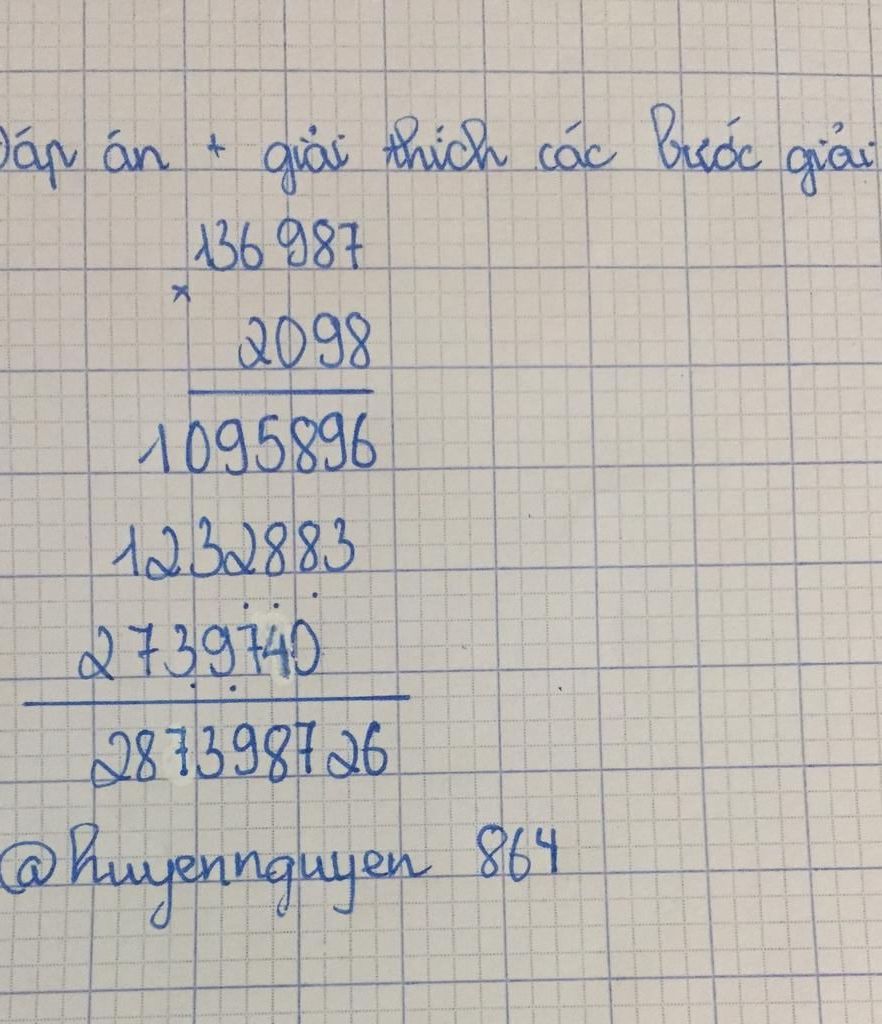 Đáp án + giải thích các bước giải
136 987
×
2098
1095896
1232883
2739740
287398726
@huyennguyen 864